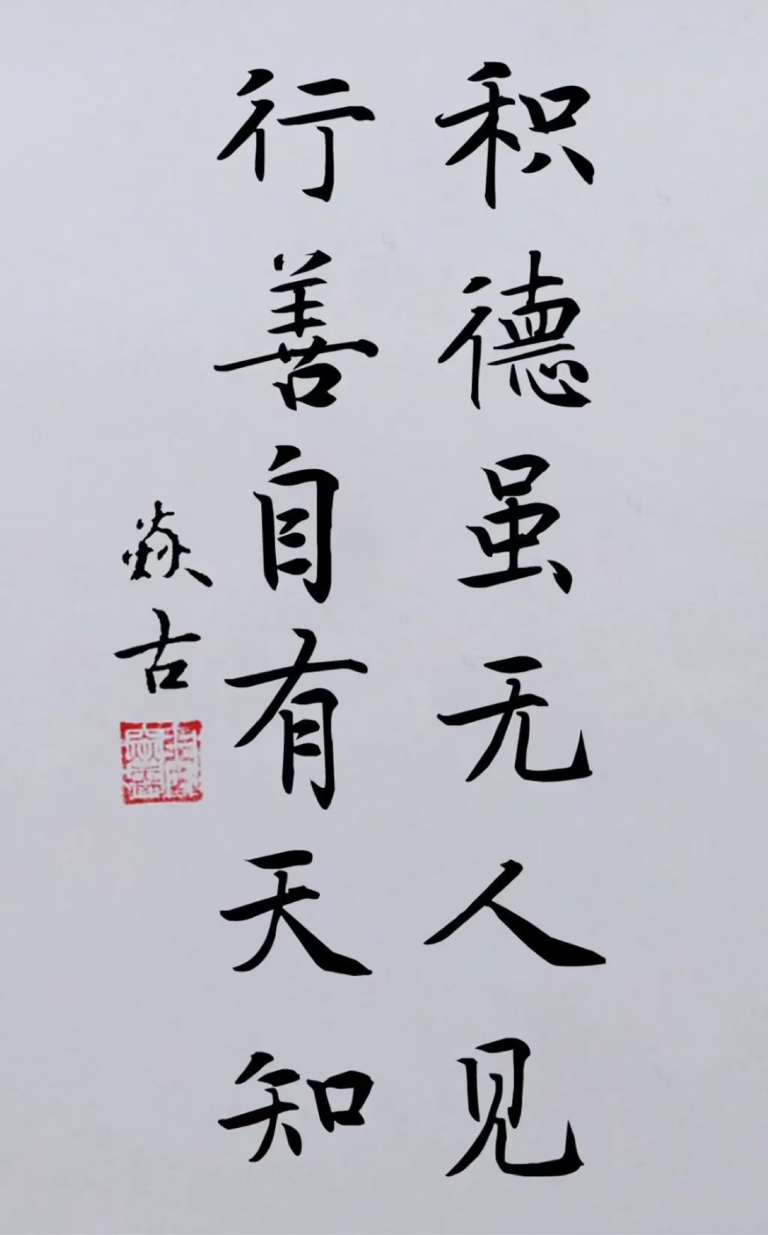 积德虽无人见
行善自有天知
焱古